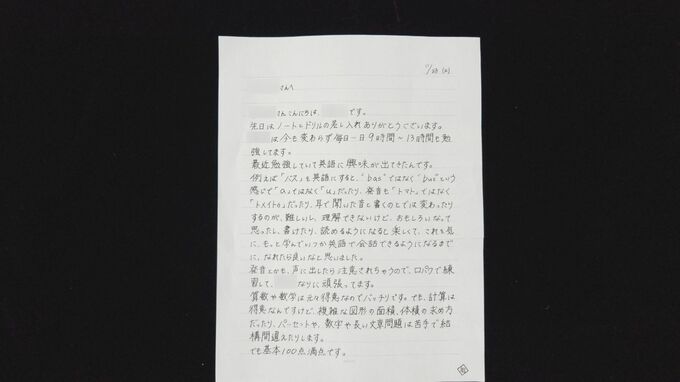 11/28 (火)
さんへ
さんこんにちは、 です。
先日はノートとドリルの差し入れありがとうございます。
は今も変わらず毎日一日9時間~13時間も勉
強してます。
最近勉強していて英語に興味が出てきたんです。
例えば「バス」も英語にすると、"bas"ではなく"bus"という
感じで「a」ではなく「u」だったり、発音も「トマト」ではなく
「トメイトゥ」だったり、耳で聞いた音と書くのとでは変わったり
するのが、難しいし、理解できないけど、おもしろいなって
思ったし、書けたり、読めるようになると楽しくて、これを気
に、もっと学んでいつか英語で会話できるようになるまで
に、なれたら良いなと思いました。
発音とかも、声に出したら注意されちゃうので、口パクで練
習して、 なりに頑張ってます。
算数や数学は元々得意なのでバッチリです。でも、計算は
得意なんですけど、複雑な図形の面積、体積の求め方
だったり、パーセットや、数字や長い文章問題は苦手で結
構間違えたりします。
でも基本100点満点です。